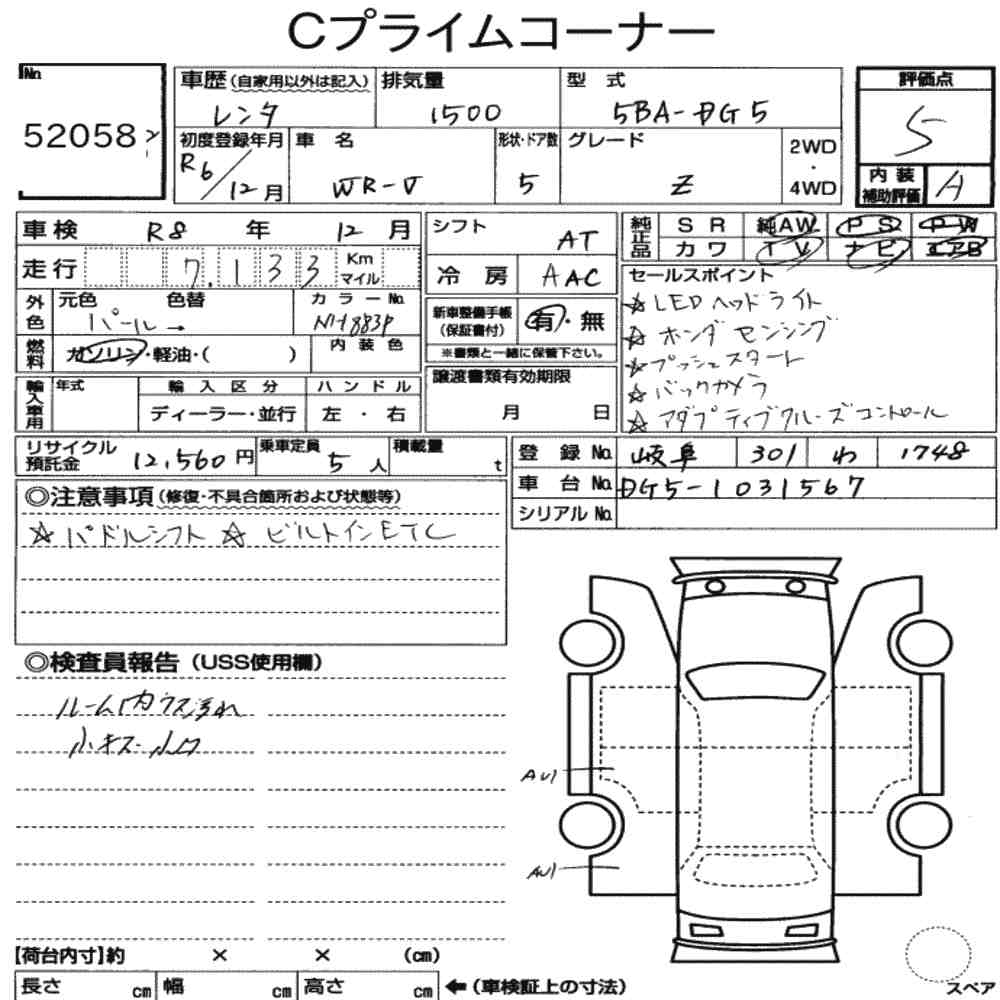 Cプライムコーナー
No.
52058
車歴(自家用以外は記入) 排気量 型式 評価点
レンタ 1500 5BA-DG5 5
初度登録年月 車名 形状・ドア数 グレード 2WD・4WD
R6/12月 WR-V 5 Z
内装補助評価 A
車検 R8年 12月
シフト AT
純正品 SR 純AW PS PW
カワ TV ナビ エアB
走行 7,133 Km マイル
冷房 AAC
セールスポイント
外色 元色 色替 カラーNo.
パール→ NH883P
新車整備手帳(保証書付) 有・無
※書類と一緒に保管下さい。
☆LEDヘッドライト
☆ホンダセンシング
☆プッシュスタート
☆バックカメラ
☆アダプティブクルーズコントロール
燃料 ガソリン・軽油・( ) 内装色
譲渡書類有効期限
月 日
輸入車用 年式 輸入区分 ハンドル
ディーラー・並行 左・右
リサイクル預託金 12,560円 乗車定員 5人 積載量 t
登録No. 岐阜 301 わ 1748
車台No. DG5-1031567
シリアルNo.
◎注意事項(修復・不具合箇所および状態等)
☆パドルシフト ☆ビルトインETC
◎検査員報告(USS使用欄)
ルーム内ウス汚れ
小キズ・小凹
AU1
AU1
【荷台内寸】約 × × (cm)
長さ cm 幅 cm 高さ cm ←(車検証上の寸法)
スペア